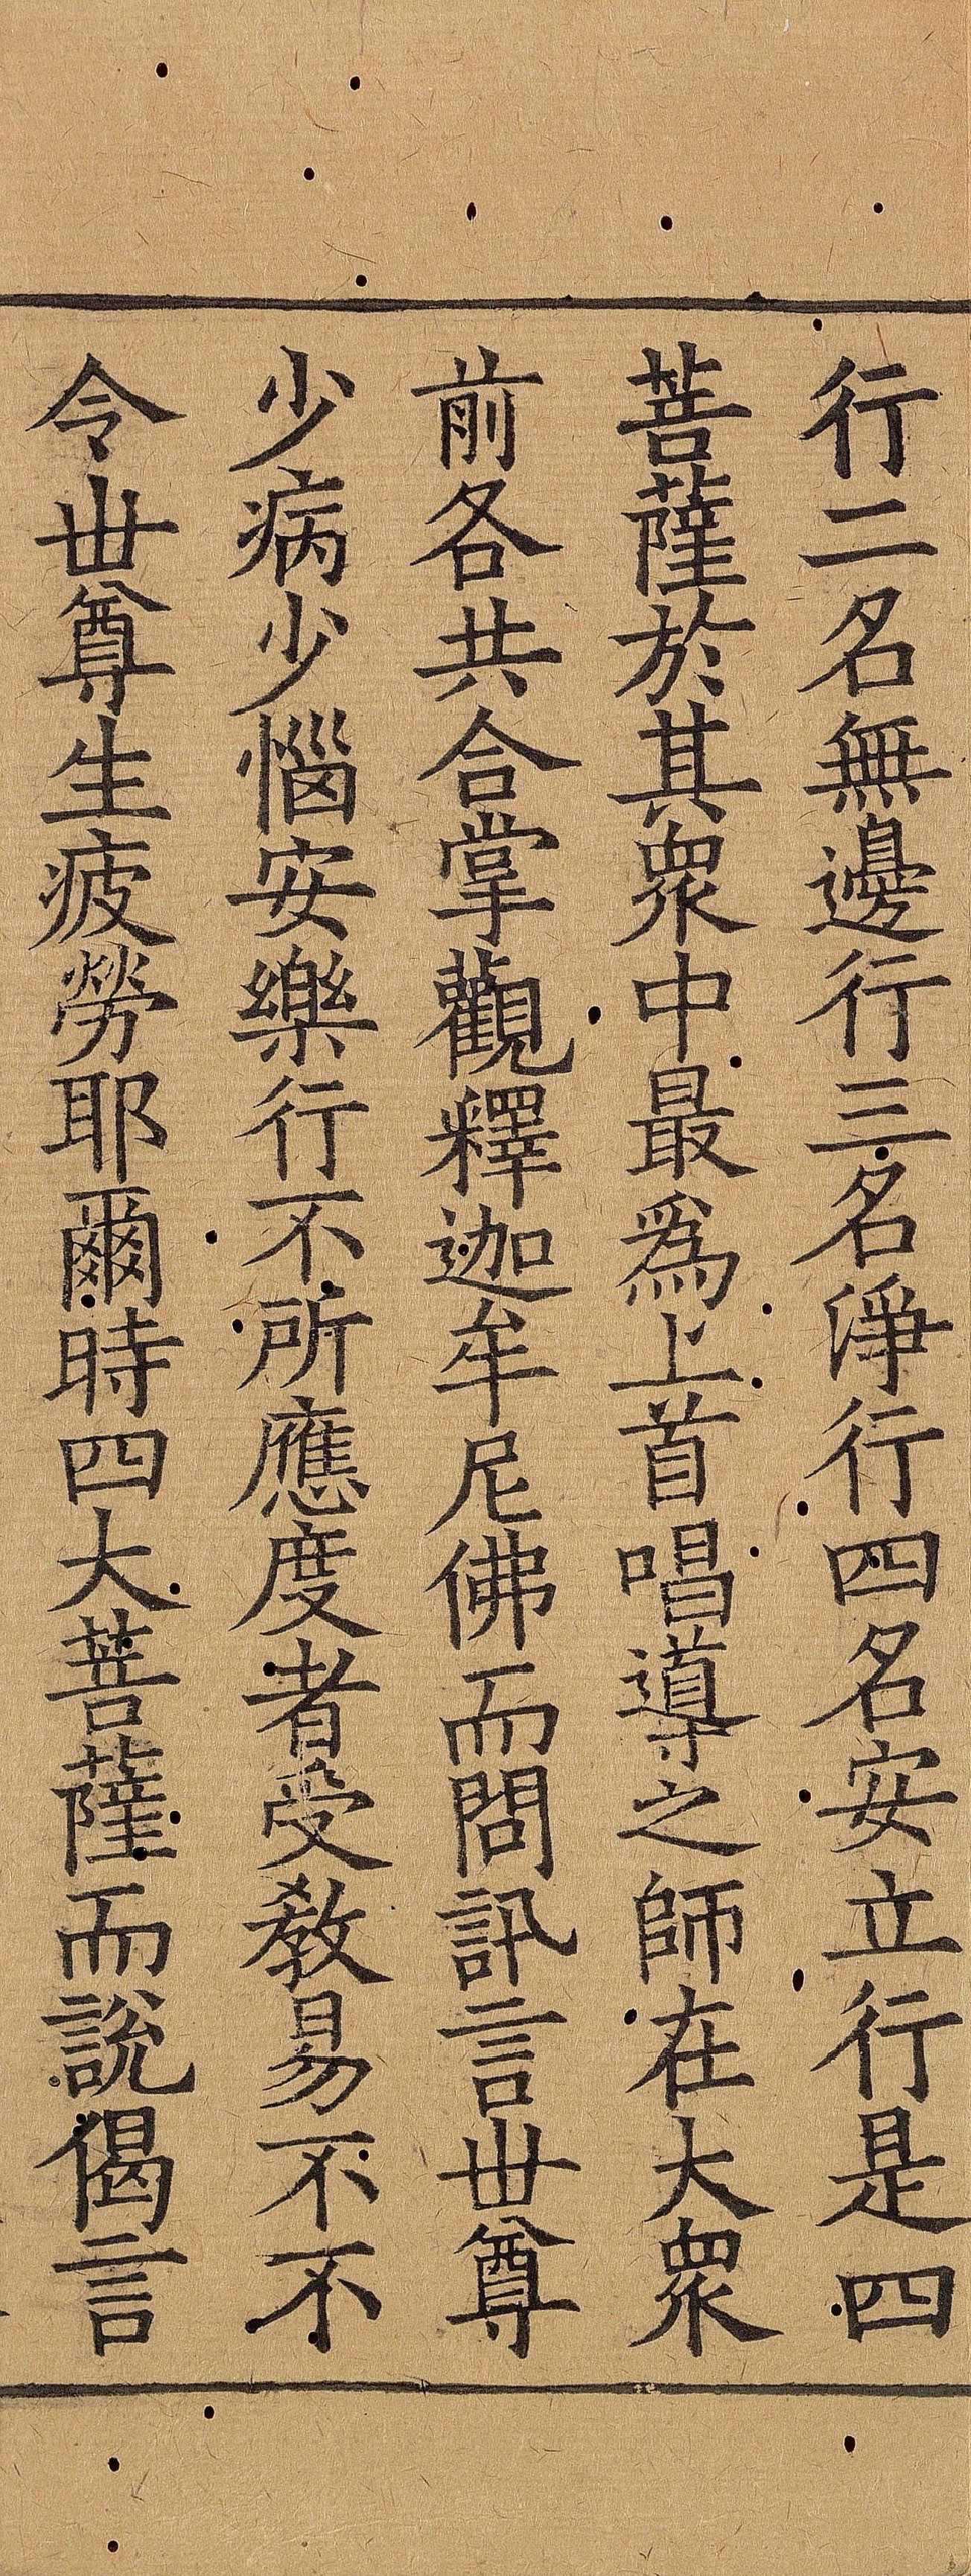 行二名無邊行三名淨行四名安立行是四
菩薩於其衆中最爲上首唱導之師在大衆
前各共合掌觀釋迦牟尼佛而問訊言丗尊
少病少惱安樂行不所應度者受教易不不
令丗尊生疲勞耶爾時四大菩薩而說偈言